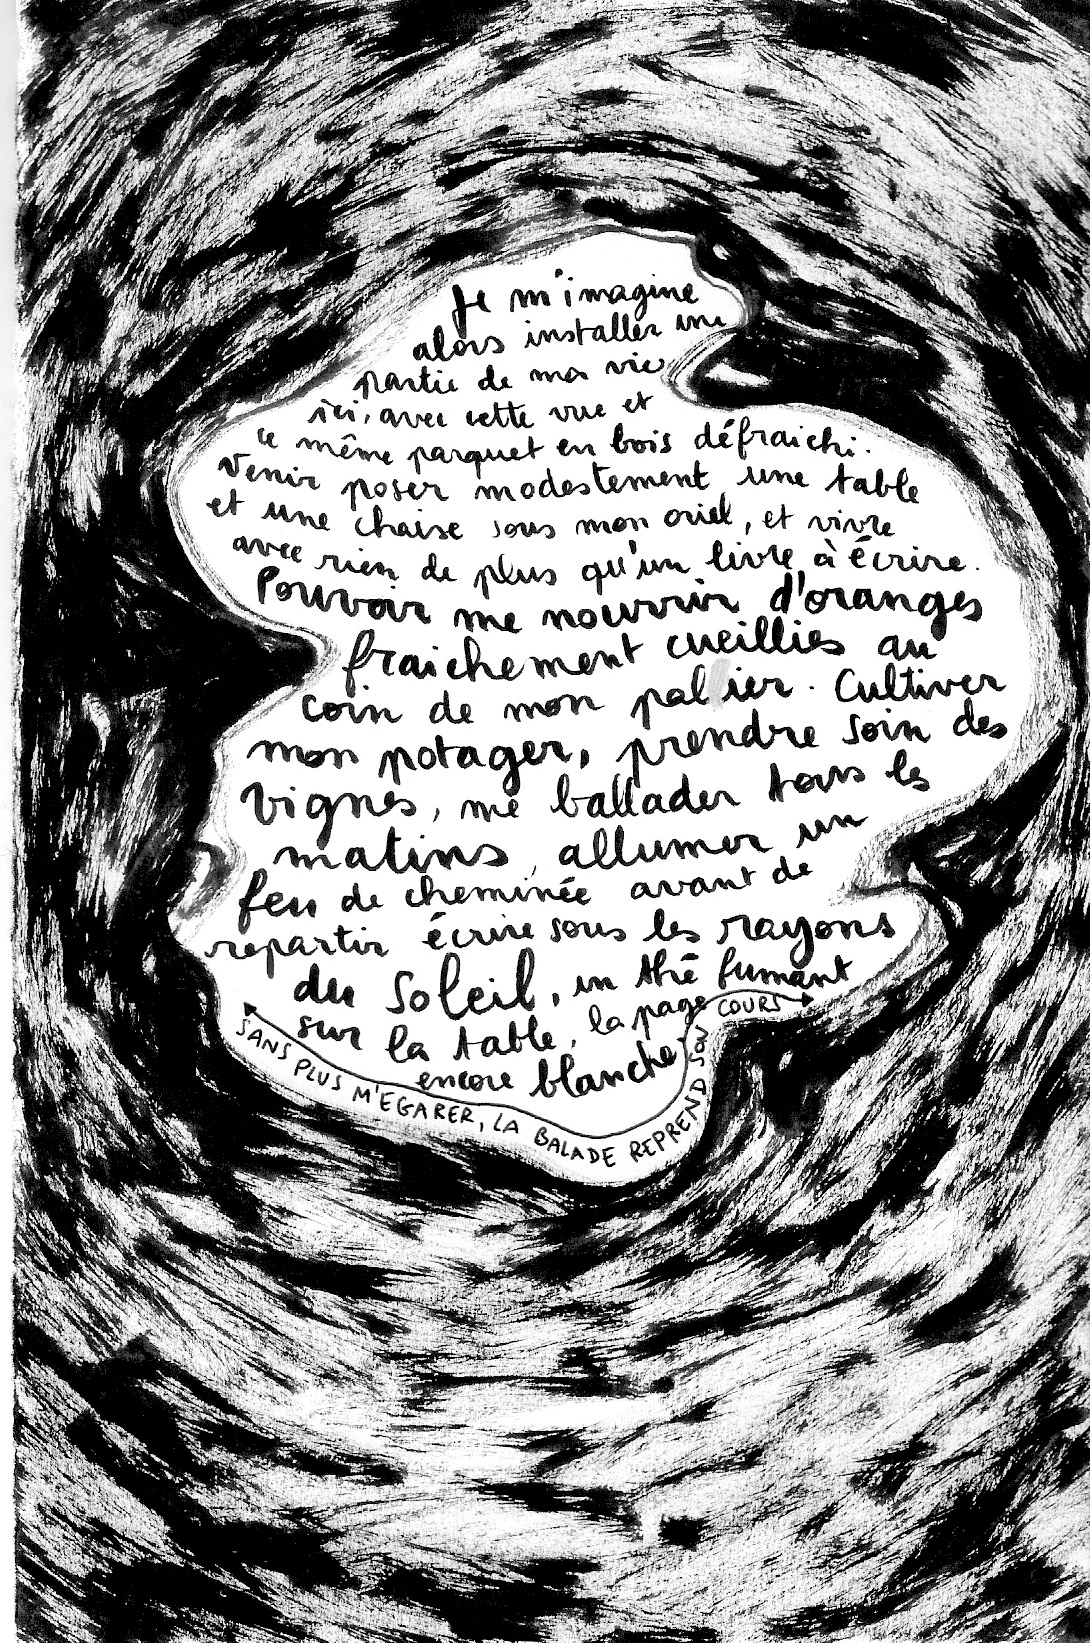 Je m'imagine
alors installer une
partie de ma vie
ici, avec cette vue et
ce même parquet en bois défraichi.
Venir poser modestement une table
et une chaise sous mon oriel, et vivre
avec rien de plus qu'un livre à écrire.
Pouvoir me nourrir d'oranges
fraichement cueillies au
coin de mon palier. Cultiver
mon potager, prendre soin des
vignes, me ballader tous les
matins, allumer un
feu de cheminée avant de
repartir écrire sous les rayons
du soleil, un thé fumant
sur la table, la page
encore blanche
SANS PLUS M'EGARER, LA BALADE REPREND SON COURS